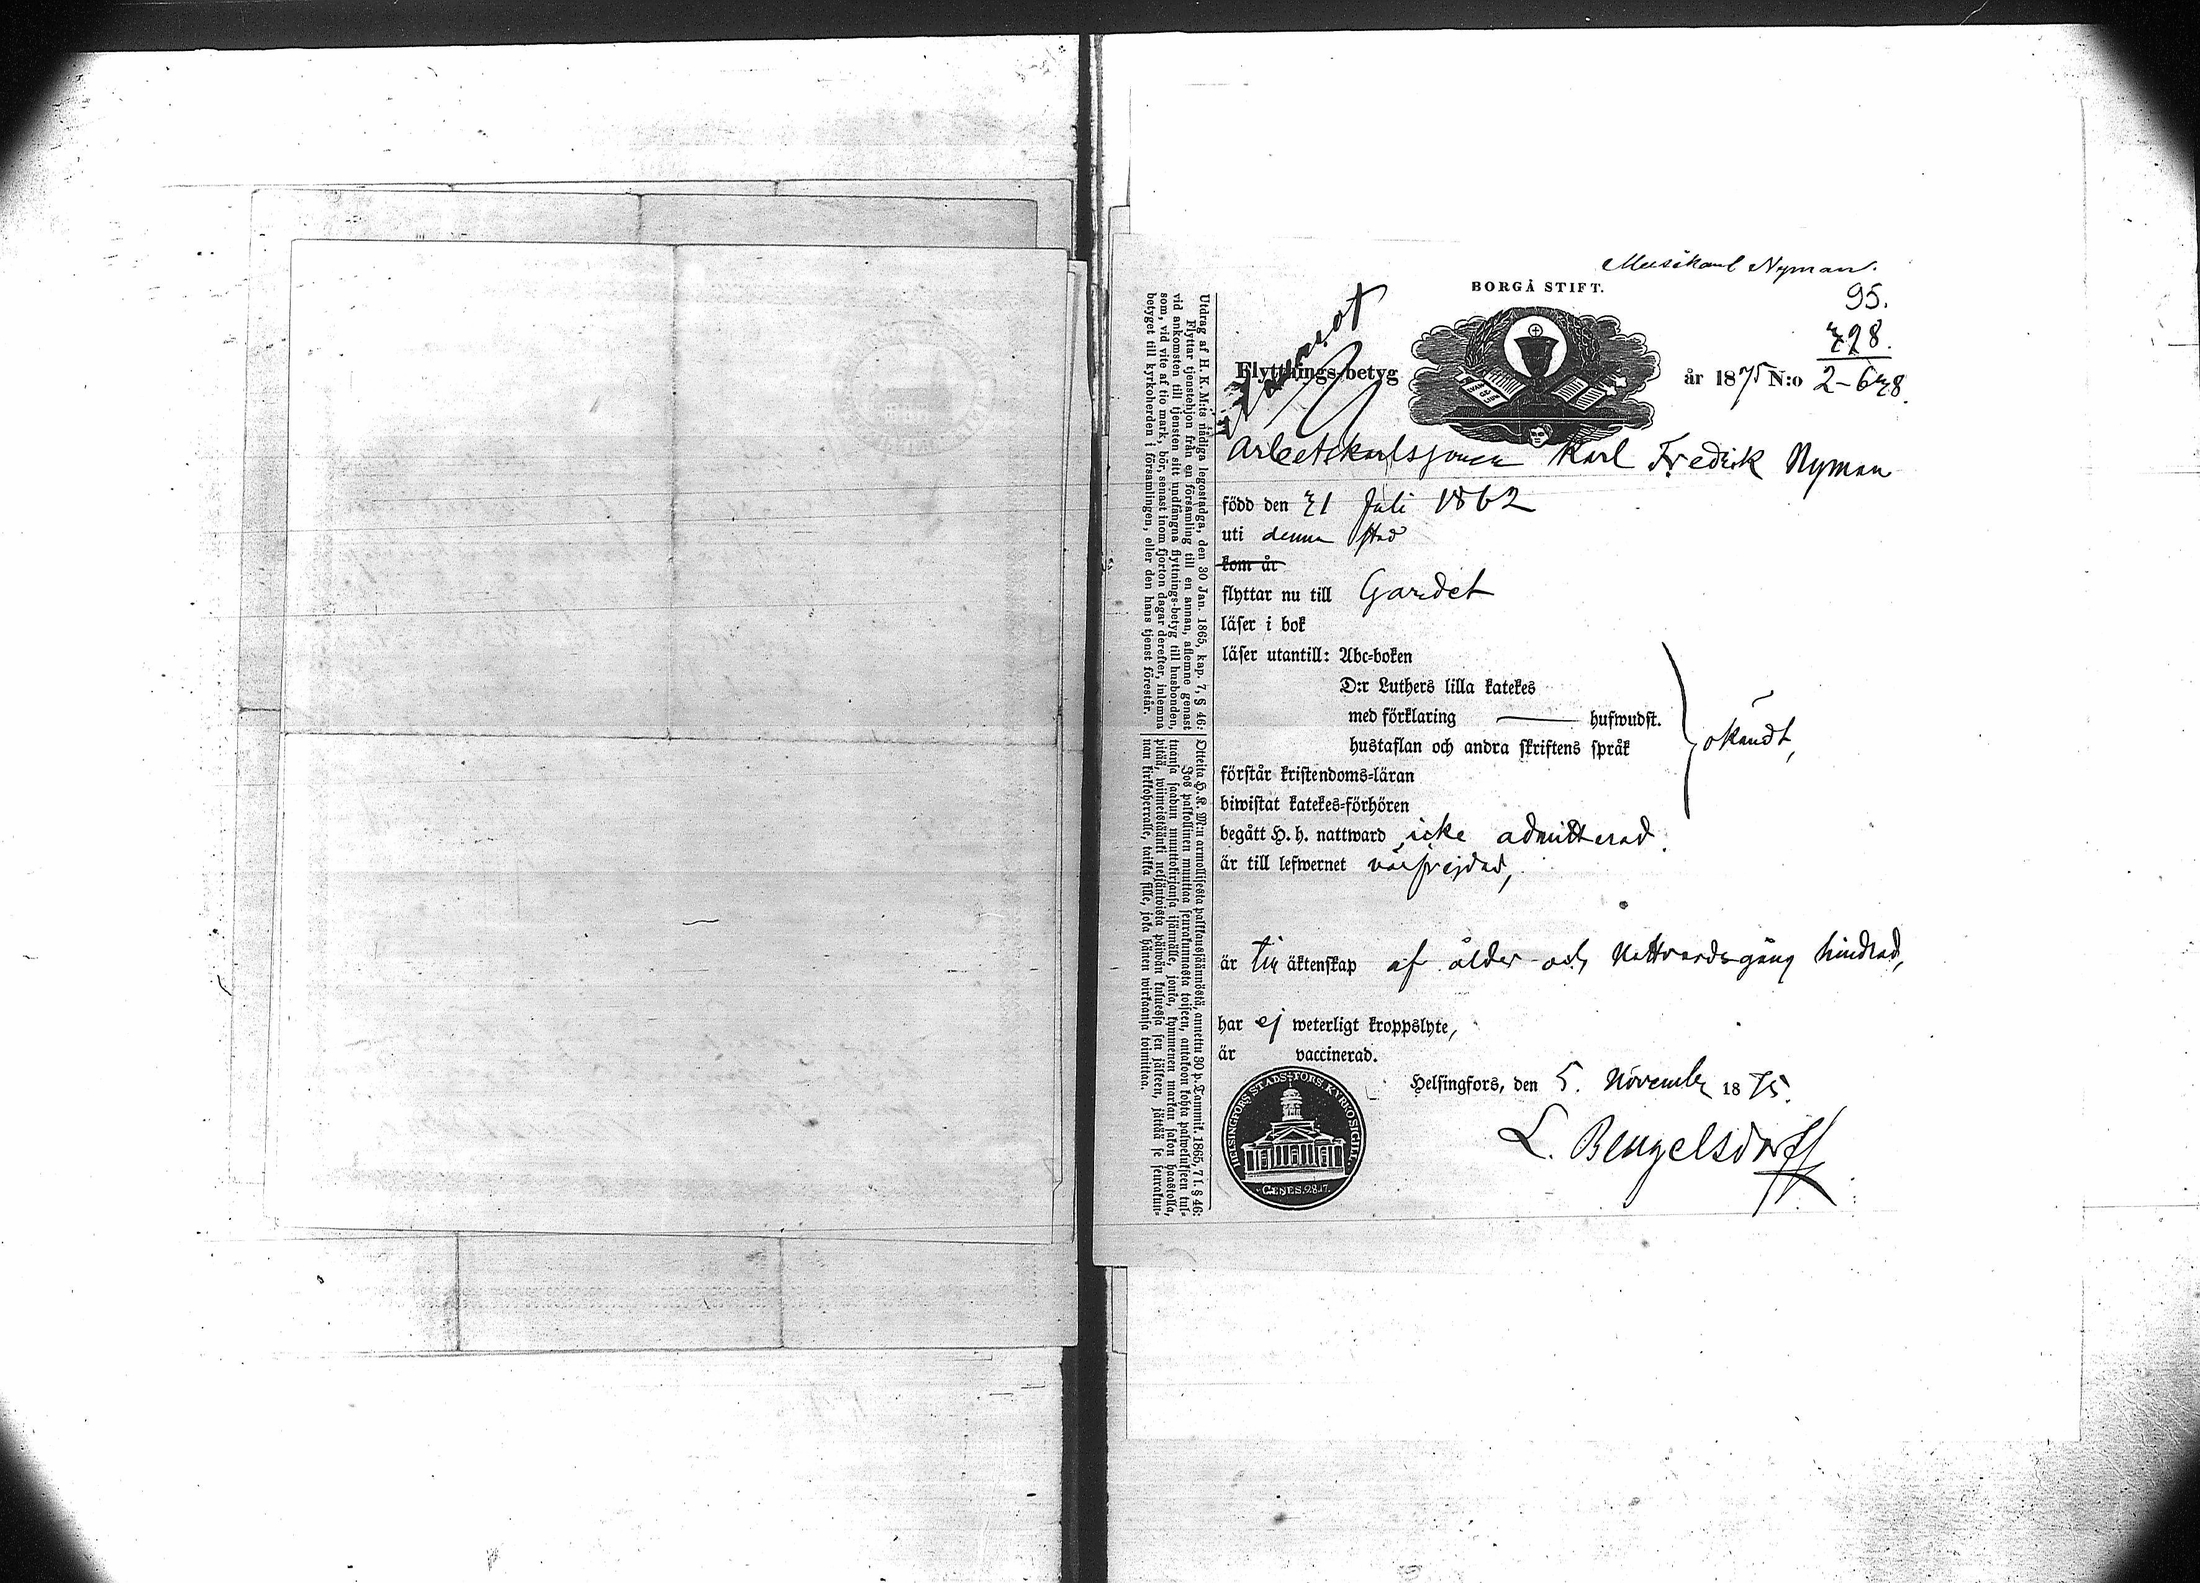 Musikant Nyman.
BORGÅ STIFT.
95.
728.
Flyttnings-betyg
år 1875 N:o 2-678.
EVAN GE LIUM
Arbetskarlssonen Karl Fredrik Nyman
född den 21 Juli 1862
uti denna stad
kom år
flyttar nu till Gardet
läser i bok
läser utantill: Abc-boken
D:r Luthers lilla katekes
med förklaring hufwudst.
hustaflan och andra skriftens språk
okändt,
förstår kristendoms-läran
biwistat katekes-förhören
begått H. h. nattward icke admitterad.
är till lefwernet välfrejdad,
är till äktenskap af ålder och Nattvardsgång hindrad,
har ej weterligt kroppslyte,
är vaccinerad.
Helsingfors, den 5. November 1875.
L. Bengelsdorff
HELSINGFORS STADS-FÖRS. KYRKO SIGILL.
GENES. 28.17.
Utdrag af H. K. M:ts nådiga legostadga, den 30 Jan. 1865, kap. 7, § 46:
Flyttar tjenstehjon från en församling till en annan, aflemne genast
vid ankomsten till tjensten sitt undfångna flyttnings-betyg till husbonden,
som, vid vite af tio mark, bör, senast inom fjorton dagar derefter, inlemna
betyget till kyrkoherden i församlingen, eller den hans tjenst förestår.
Otteita H. K. M:n armollisesta palkkaussäännöstä, annettu 30 p. Tammik. 1865, 7 l. § 46:
Jos palkollinen muuttaa seurakunnasta toiseen, antakoon kohta palwelukseen tul-
tuansa saadun muuttokirjansa isännälle, jonka, kymmenen markan sakon haastolla,
pitää, wiimeistänki neljäntoista päiwän kuluessa sen jälkeen, jättää se seurakun-
nan kirkkoherralle, taikka sille, joka hänen wirkaansa toimittaa.